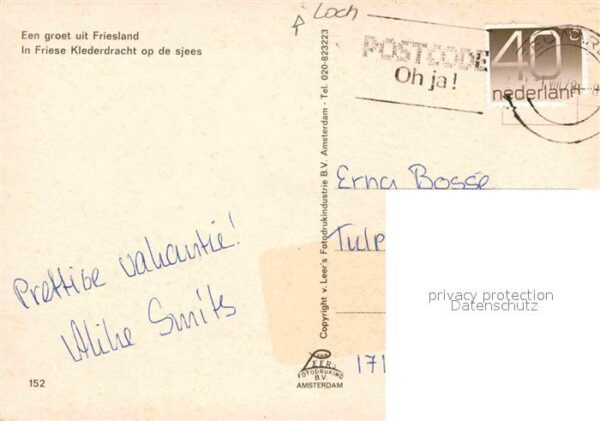 Een groet uit Friesland
In Friese Klederdracht op de sjees
Loch
POSTCODE
Oh ja!
40
nederland
Copyright v. Leer's Fotodrukindustrie B.V. Amsterdam - Tel. 020-823223
Erna Bosse
Tulp
171
Prettige vakantie!
Smits
privacy protection
Datenschutz
VAN
LEER'S
FOTODRUKIND
B.V.
AMSTERDAM
152